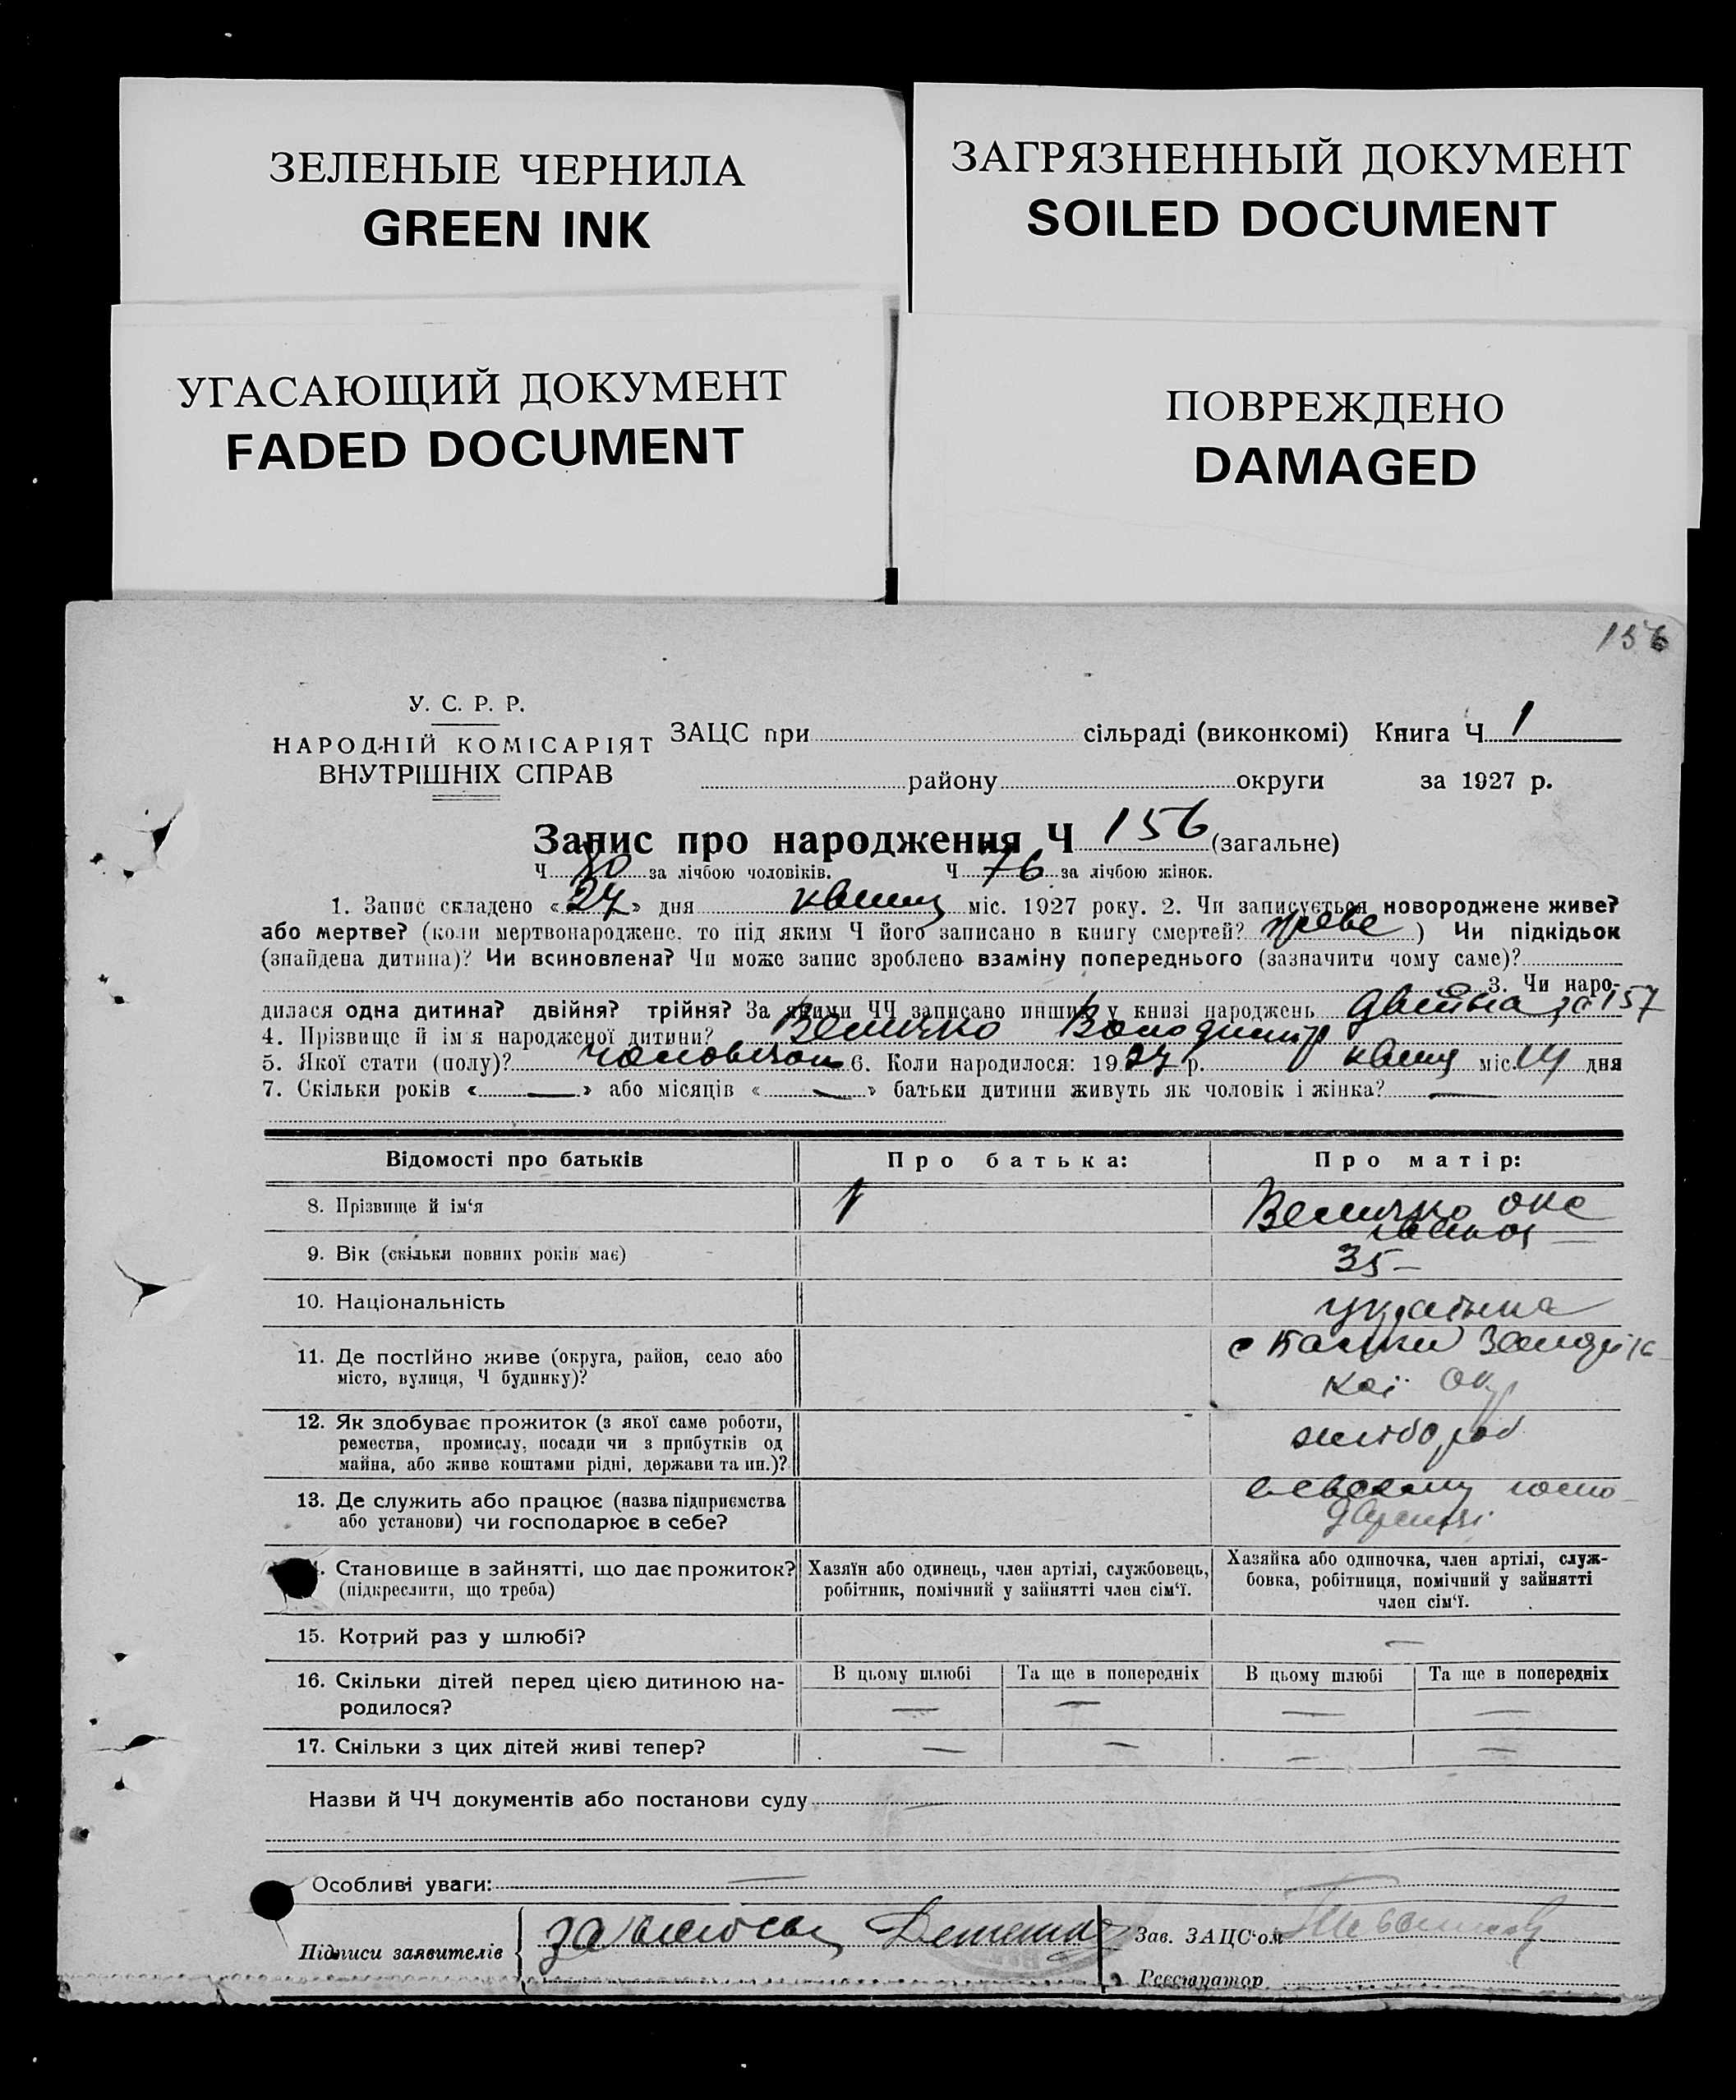 ЗЕЛЕНЫЕ ЧЕРНИЛА
GREEN INK
ЗАГРЯЗНЕННЫЙ ДОКУМЕНТ
SOILED DOCUMENT
УГАСАЮЩИЙ ДОКУМЕНТ
FADED DOCUMENT
ПОВРЕЖДЕНО
DAMAGED
156
У. С. Р. Р.
НАРОДНІЙ КОМІСАРІЯТ
ВНУТРІШНІХ СПРАВ
ЗАЦС при сільраді (виконкомі) Книга Ч 1
району округи за 1927 р.
Запис про народження Ч 156 (загальне)
Ч 80 за лічбою чоловіків. Ч 76 за лічбою жінок.
1. Запис складено «27» дня квітня міс. 1927 року. 2. Чи записується новороджене живе?
або мертве? (коли мертвонароджене, то під яким Ч його записано в книгу смертей? живе) Чи підкідьок
(знайдена дитина)? Чи всиновлена? Чи може запис зроблено взаміну попереднього (зазначити чому саме)?
3. Чи наро-
дилася одна дитина? двійня? трійня? За якими ЧЧ записано инших у книзі народжень двійня за 157
4. Прізвище й ім'я народженої дитини? Величко Володимир
5. Якої стати (полу)? чоловічої 6. Коли народилося: 1927 р. квітня міс. 14 дня
7. Скільки років «—» або місяців «—» батьки дитини живуть як чоловік і жінка? —
Відомості про батьків
Про батька:
Про матір:
8. Прізвище й ім'я
Величко
9. Вік (скільки повних років має)
35 –
10. Національність
українка
11. Де постійно живе (округа, район, село або
місто, вулиця, Ч будинку)?
с
кої окр
12. Як здобуває прожиток (з якої саме роботи,
ремества, промислу, посади чи з прибутків од
майна, або живе коштами рідні, держави та ин.)?
хлібороб
13. Де служить або працює (назва підприємства
або установи) чи господарює в себе?
в своєму госпо-
дарстві
14. Становище в зайнятті, що дає прожиток?
(підкреслити, що треба)
Хазяїн або одинець, член артілі, службовець,
робітник, помічний у зайнятті член сім'ї.
Хазяйка або одиночка, член артілі, служ-
бовка, робітниця, помічний у зайнятті
член сім'ї.
15. Котрий раз у шлюбі?
—
16. Скільки дітей перед цією дитиною на-
родилося?
В цьому шлюбі Та ще в попередніх В цьому шлюбі Та ще в попередніх
— — — —
17. Скільки з цих дітей живі тепер?
— — — —
Назви й ЧЧ документів або постанови суду
Особливі уваги: —
Підписи заявителів
Зав. ЗАЦС'ом
Реєстратор